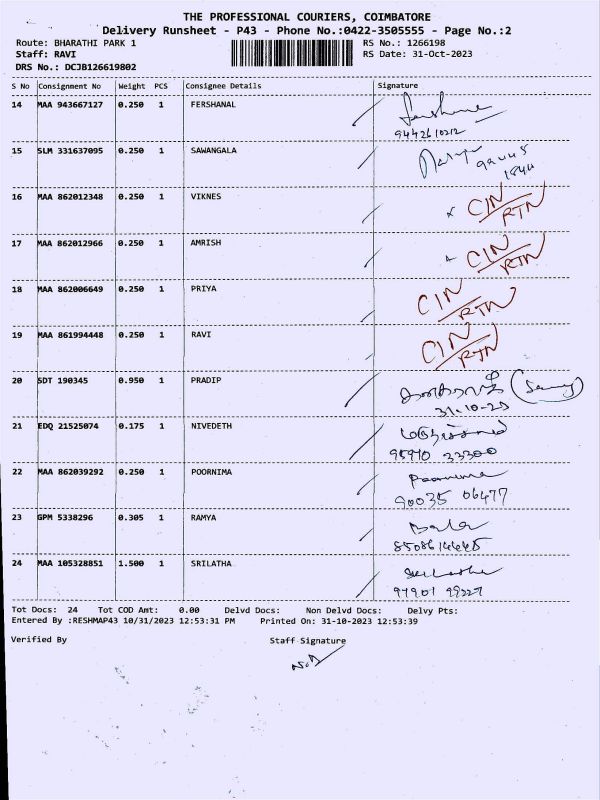 THE PROFESSIONAL COURIERS, COIMBATORE
Delivery Runsheet - P43 - Phone No.:0422-3505555 - Page No.:2
Route: BHARATHI PARK 1 RS No.: 1266198
Staff: RAVI RS Date: 31-Oct-2023
DRS No.: DCJB126619802
S No Consignment No Weight PCS Consignee Details Signature
14 MAA 943667127 0.250 1 FERSHANAL
9442610212
15 SLM 331637095 0.250 1 SAWANGALA
16 MAA 862012348 0.250 1 VIKNES CIN/RTN
17 MAA 862012966 0.250 1 AMRISH CIN/RTN
18 MAA 862006649 0.250 1 PRIYA CIN/RTN
19 MAA 861994448 0.250 1 RAVI CIN/RTN
20 SDT 190345 0.950 1 PRADIP
31-10-23
21 EDQ 21525074 0.175 1 NIVEDETH
95970 33300
22 MAA 862039292 0.250 1 POORNIMA Poornima
90035 06477
23 GPM 5338296 0.305 1 RAMYA Bala
24 MAA 105328851 1.500 1 SRILATHA
Tot Docs: 24 Tot COD Amt: 0.00 Delvd Docs: Non Delvd Docs: Delvy Pts:
Entered By :RESHMAP43 10/31/2023 12:53:31 PM Printed On: 31-10-2023 12:53:39
Verified By Staff Signature